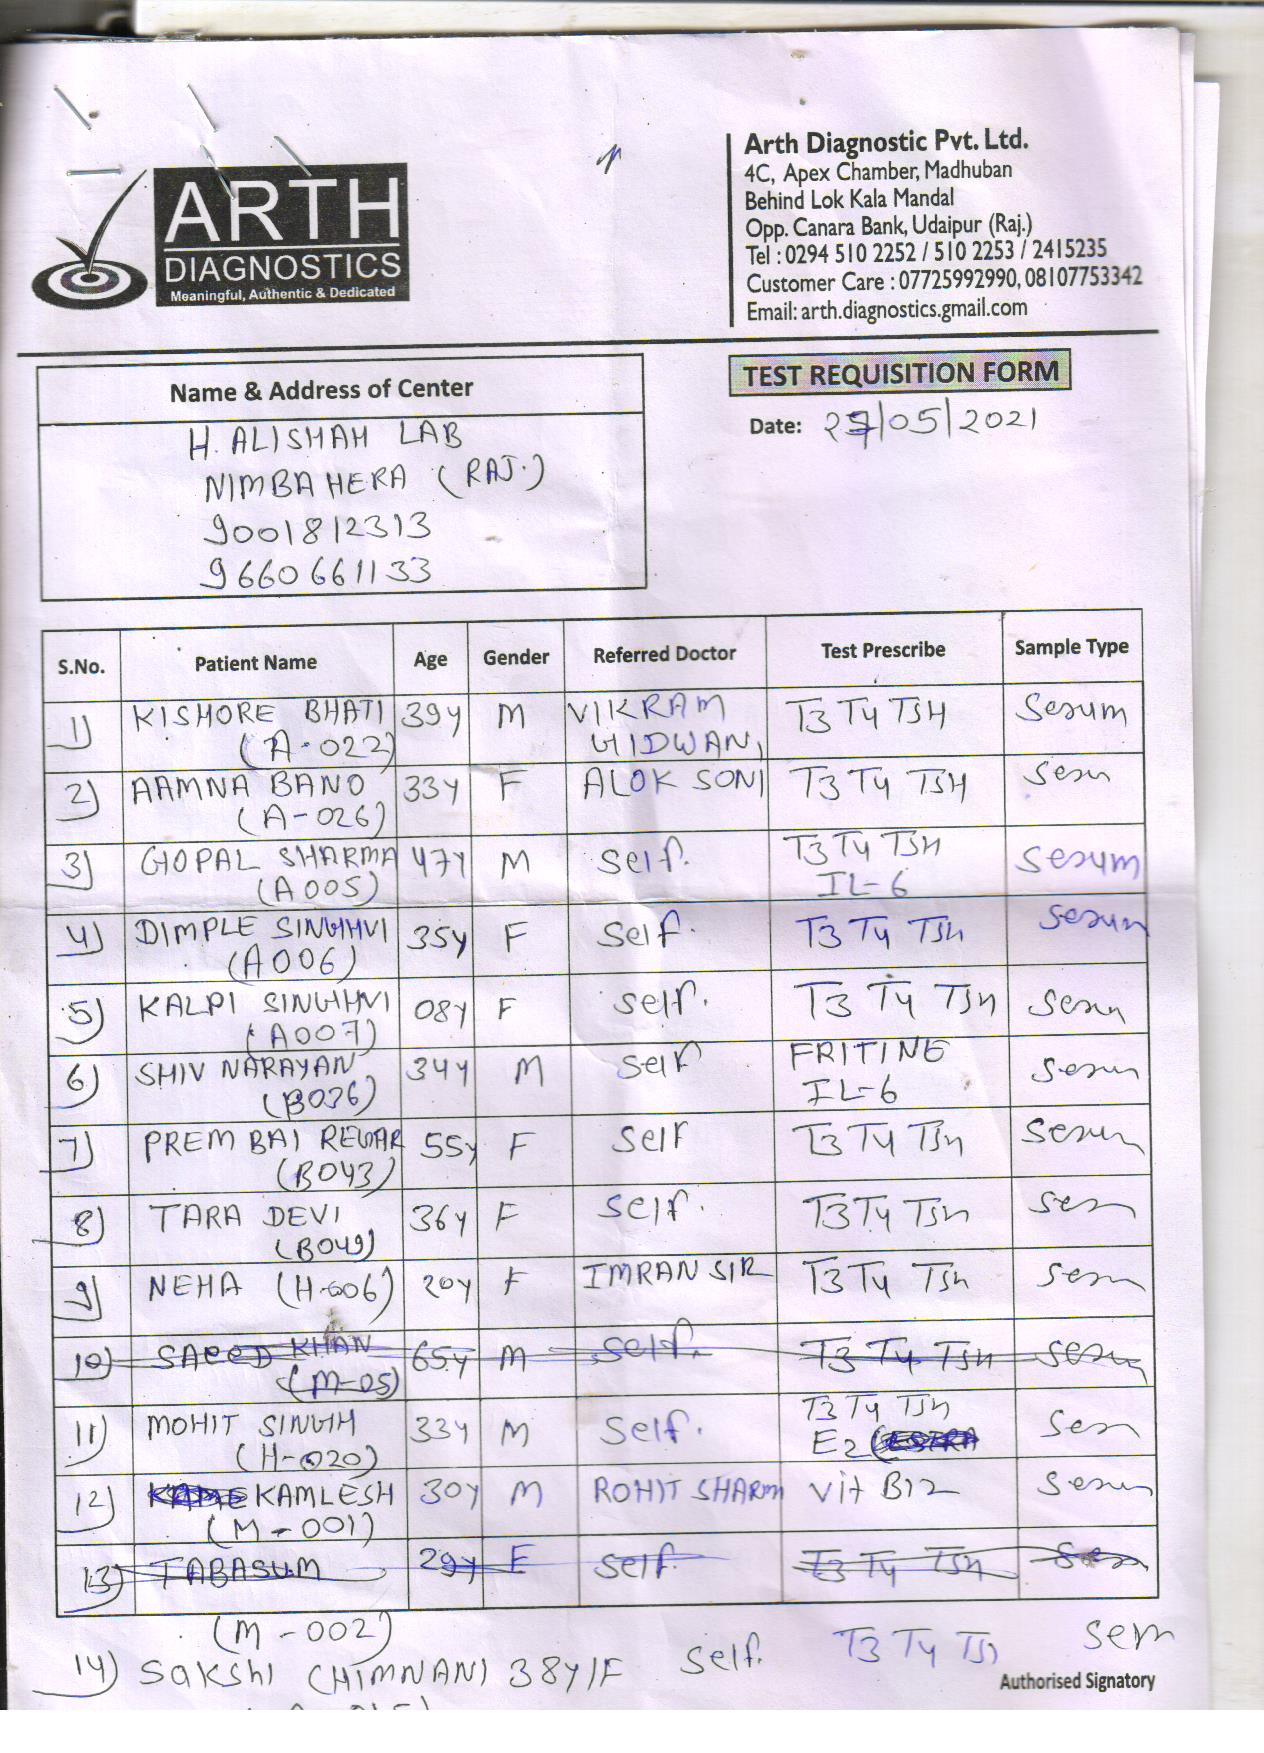 ARTH
DIAGNOSTICS
Meaningful, Authentic & Dedicated
Arth Diagnostic Pvt. Ltd.
4C, Apex Chamber, Madhuban
Behind Lok Kala Mandal
Opp. Canara Bank, Udaipur (Raj.)
Tel : 0294 510 2252 / 510 2253 / 2415235
Customer Care : 07725992990, 08107753342
Email: arth.diagnostics.gmail.com
Name & Address of Center
H. ALISHAH LAB
NIMBAHERA (RAJ.)
9001812313
9660661133
TEST REQUISITION FORM
Date: /05/2021
S.No. Patient Name Age Gender Referred Doctor Test Prescribe Sample Type
1) KISHORE BHATI 39y M VIKRAM T3 T4 TSH Serum
(A-022) VIDWAN,
2) AAMNA BANO 33y F ALOK SONI T3 T4 TSH Serum
(A-026)
3) GOPAL SHARMA 47y M Self. T3 T4 TSH Serum
(A005) IL-6
4) DIMPLE SINGHVI 35y F Self. T3 T4 TSH Serum
(A006)
5) KALPI SINGHVI 08y F Self. T3 T4 TSH Serum
(A007)
6) SHIV NARAYAN 34y M Self FRITINE Serum
(B036) IL-6
7) PREM BAI REGAR 55y F Self T3 T4 TSH Serum
(B043)
8) TARA DEVI 36y F Self. T3 T4 TSH Serum
(B049)
9) NEHA (H-006) 20y F IMRAN SIR T3 T4 TSH Serum
10) SAEED KHAN 65y M Self. T3 T4 TSH Serum
(M-05)
11) MOHIT SINGH 33y M Self. T3 T4 TSH Serum
(H-020) E2
12) KAMLESH 30y M ROHIT SHARM Vit B12 Serum
(M-001)
13) TABASUM 29y F Self. T3 T4 TSH Serum
(M-002)
14) Sakshi CHIMNANI 38y/F Self. T3 T4 TSH Serum
Authorised Signatory